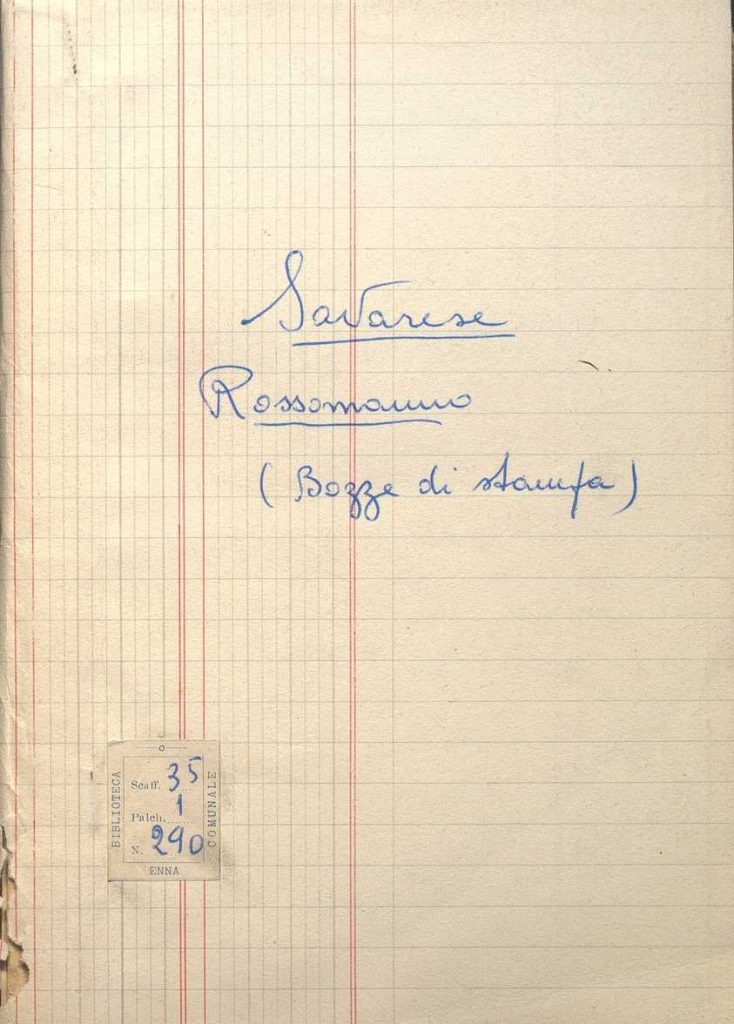 Savarese
Rossomanno
(Bozze di stampa)
BIBLIOTECA
Scaff. 35
Palch. 1
N. 290
COMUNALE
ENNA